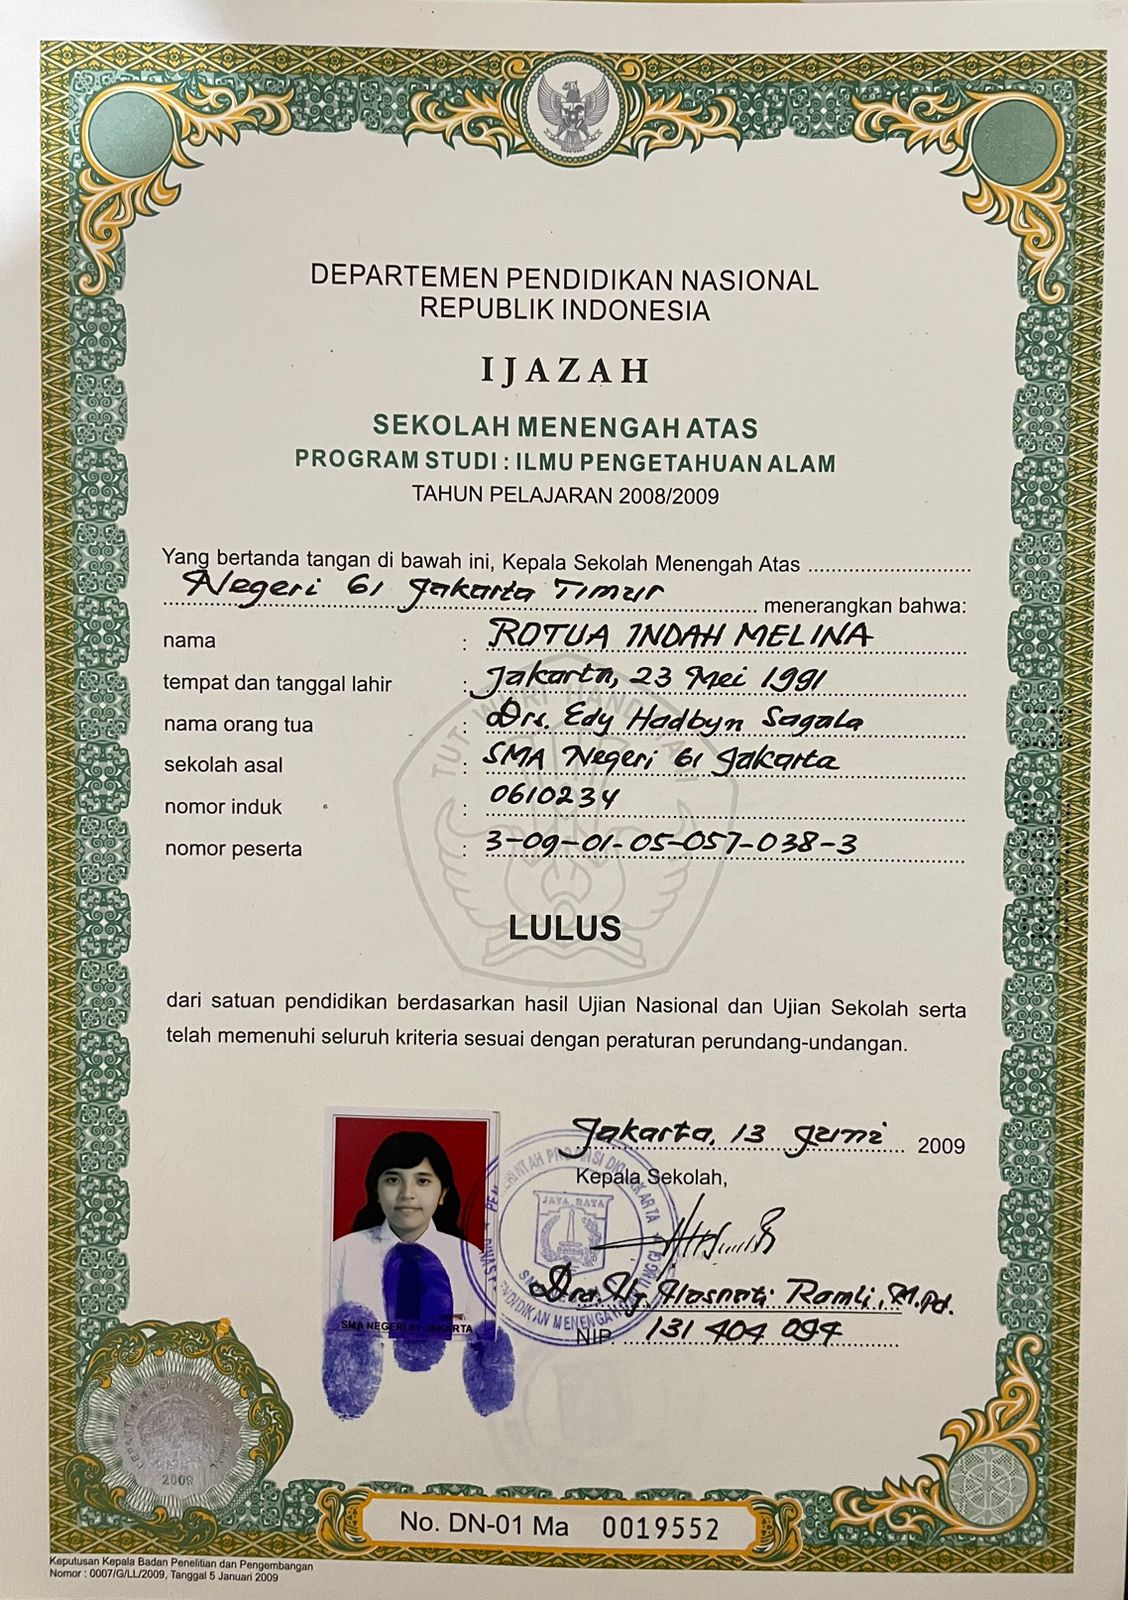 DEPARTEMEN PENDIDIKAN NASIONAL
REPUBLIK INDONESIA
IJAZAH
SEKOLAH MENENGAH ATAS
PROGRAM STUDI : ILMU PENGETAHUAN ALAM
TAHUN PELAJARAN 2008/2009
Yang bertanda tangan di bawah ini, Kepala Sekolah Menengah Atas
Negeri 61 Jakarta Timur menerangkan bahwa:
nama : ROTUA INDAH MELINA
tempat dan tanggal lahir : Jakarta, 23 Mei 1991
nama orang tua : Drs. Edy Hadbyn Sagala
sekolah asal : SMA Negeri 61 Jakarta
nomor induk : 0610234
nomor peserta : 3-09-01-05-057-038-3
TUT WURI HANDAYANI
LULUS
dari satuan pendidikan berdasarkan hasil Ujian Nasional dan Ujian Sekolah serta
telah memenuhi seluruh kriteria sesuai dengan peraturan perundang-undangan.
Jakarta, 13 Juni 2009
Kepala Sekolah,
JAYA RAYA
Dra. Hj. Hasnati Ramli, M.Pd.
NIP. 131 404 094
SMA NEGERI 61 JAKARTA
2009
No. DN-01 Ma 0019552
Keputusan Kepala Badan Penelitian dan Pengembangan
Nomor : 0007/G/LL/2009, Tanggal 5 Januari 2009